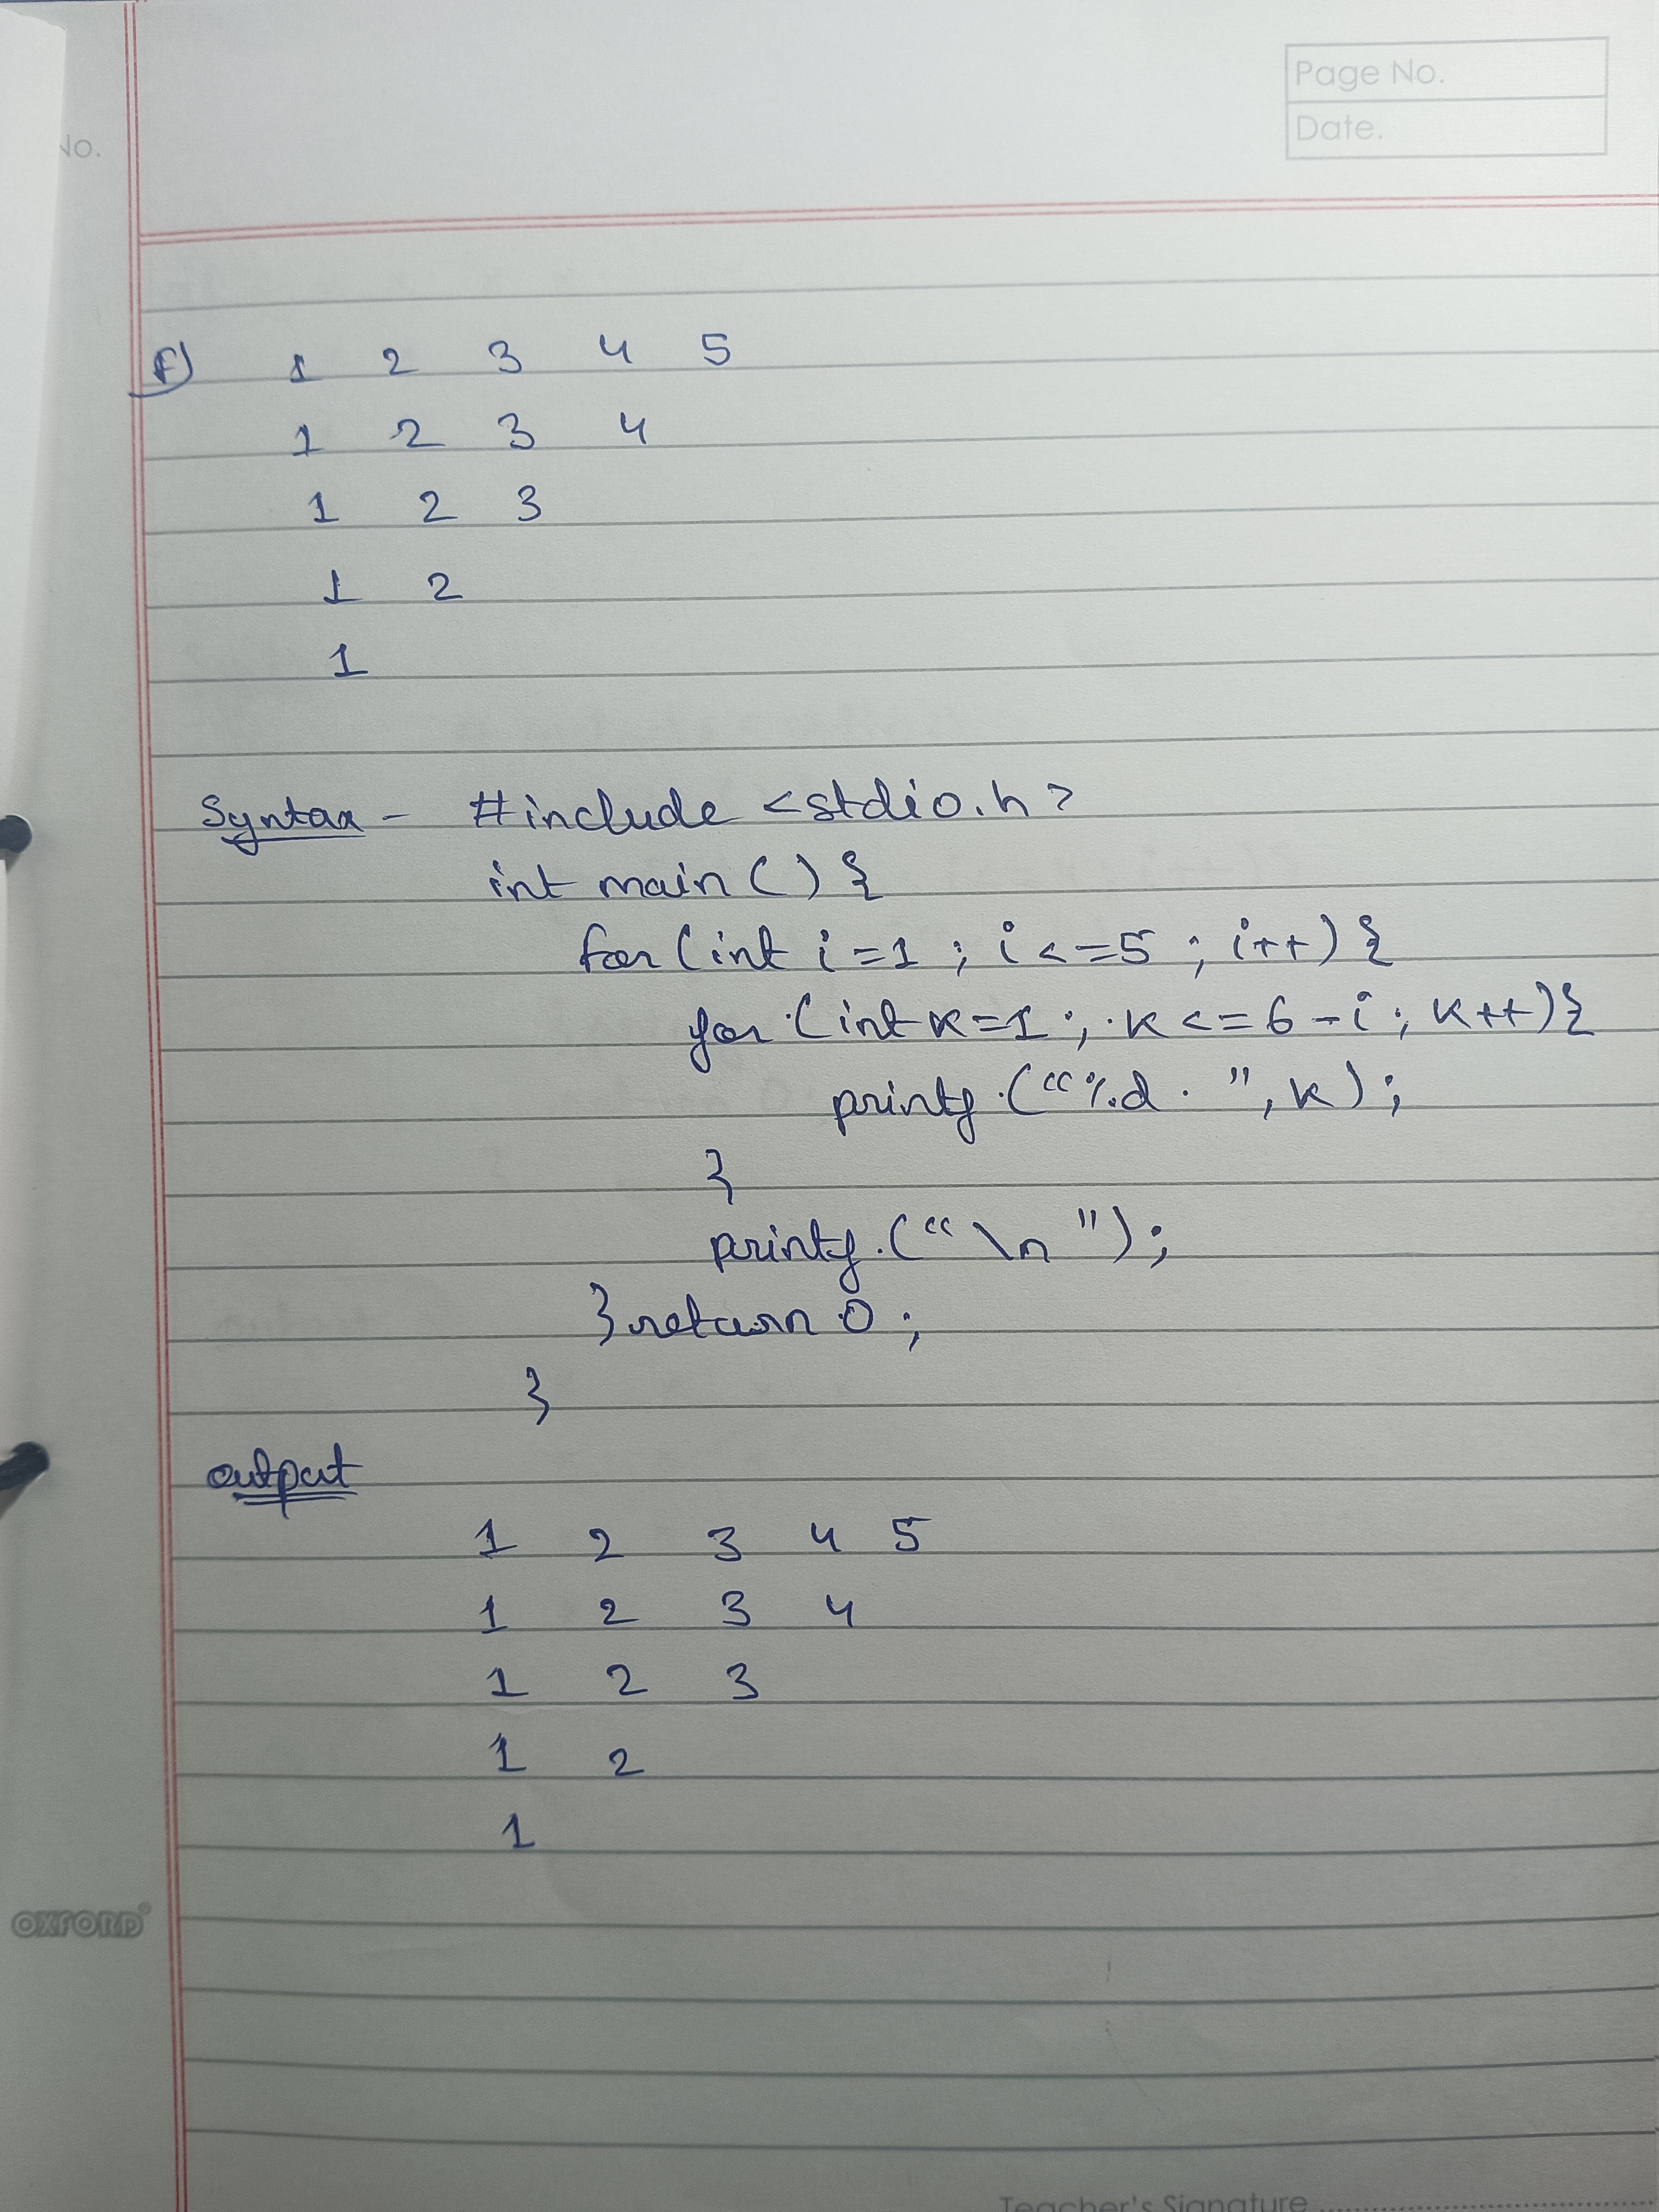 Page No.
Date.
No.
F) 1 2 3 4 5
1 2 3 4
1 2 3
1 2
1
Syntax - #include <stdio.h>
int main () {
for (int i = 1 ; i <= 5 ; i++) {
for (int k = 1 ; k <= 6 - i ; k++) {
printf ("%d ", k) ;
}
printf ("\n") ;
} return 0 ;
}
output
1 2 3 4 5
1 2 3 4
1 2 3
1 2
1
OXFORD
Teacher's Signature